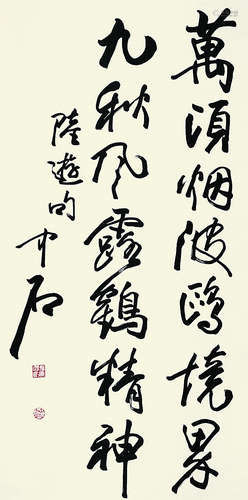 萬頃烟波鷗境界
九秋風露鶴精神
陸遊句
中石